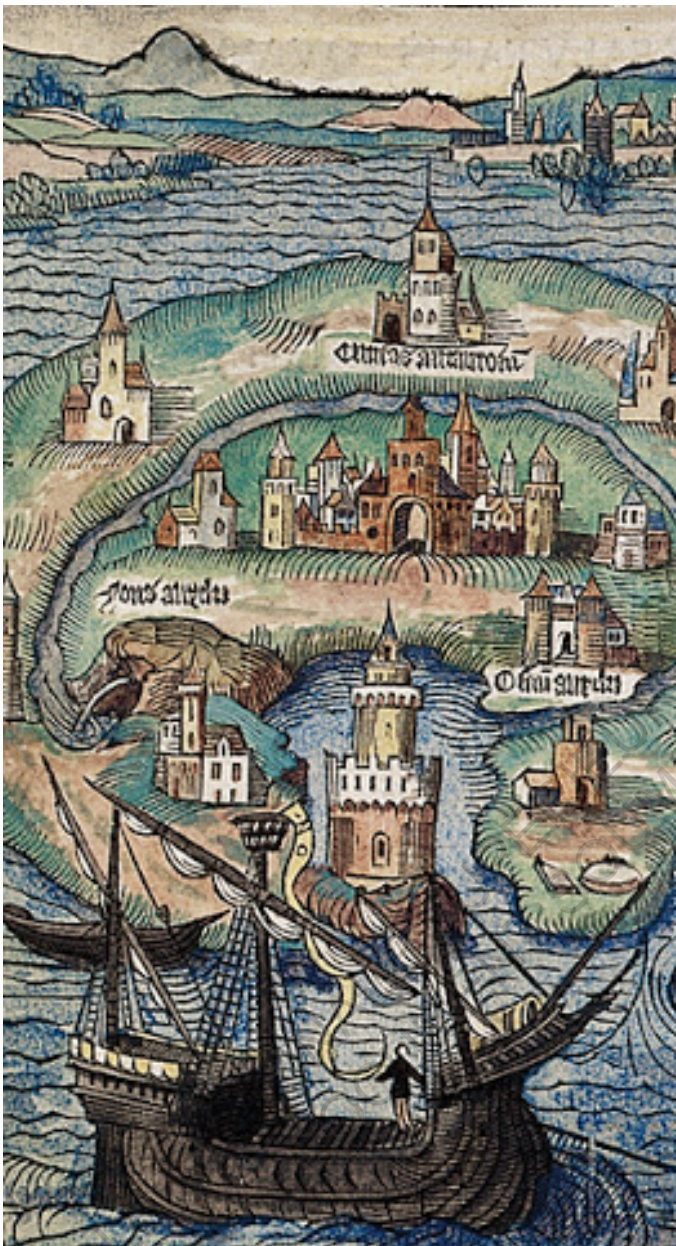 Ciuitas amaurotū
fons anydri
Ostiū anydri